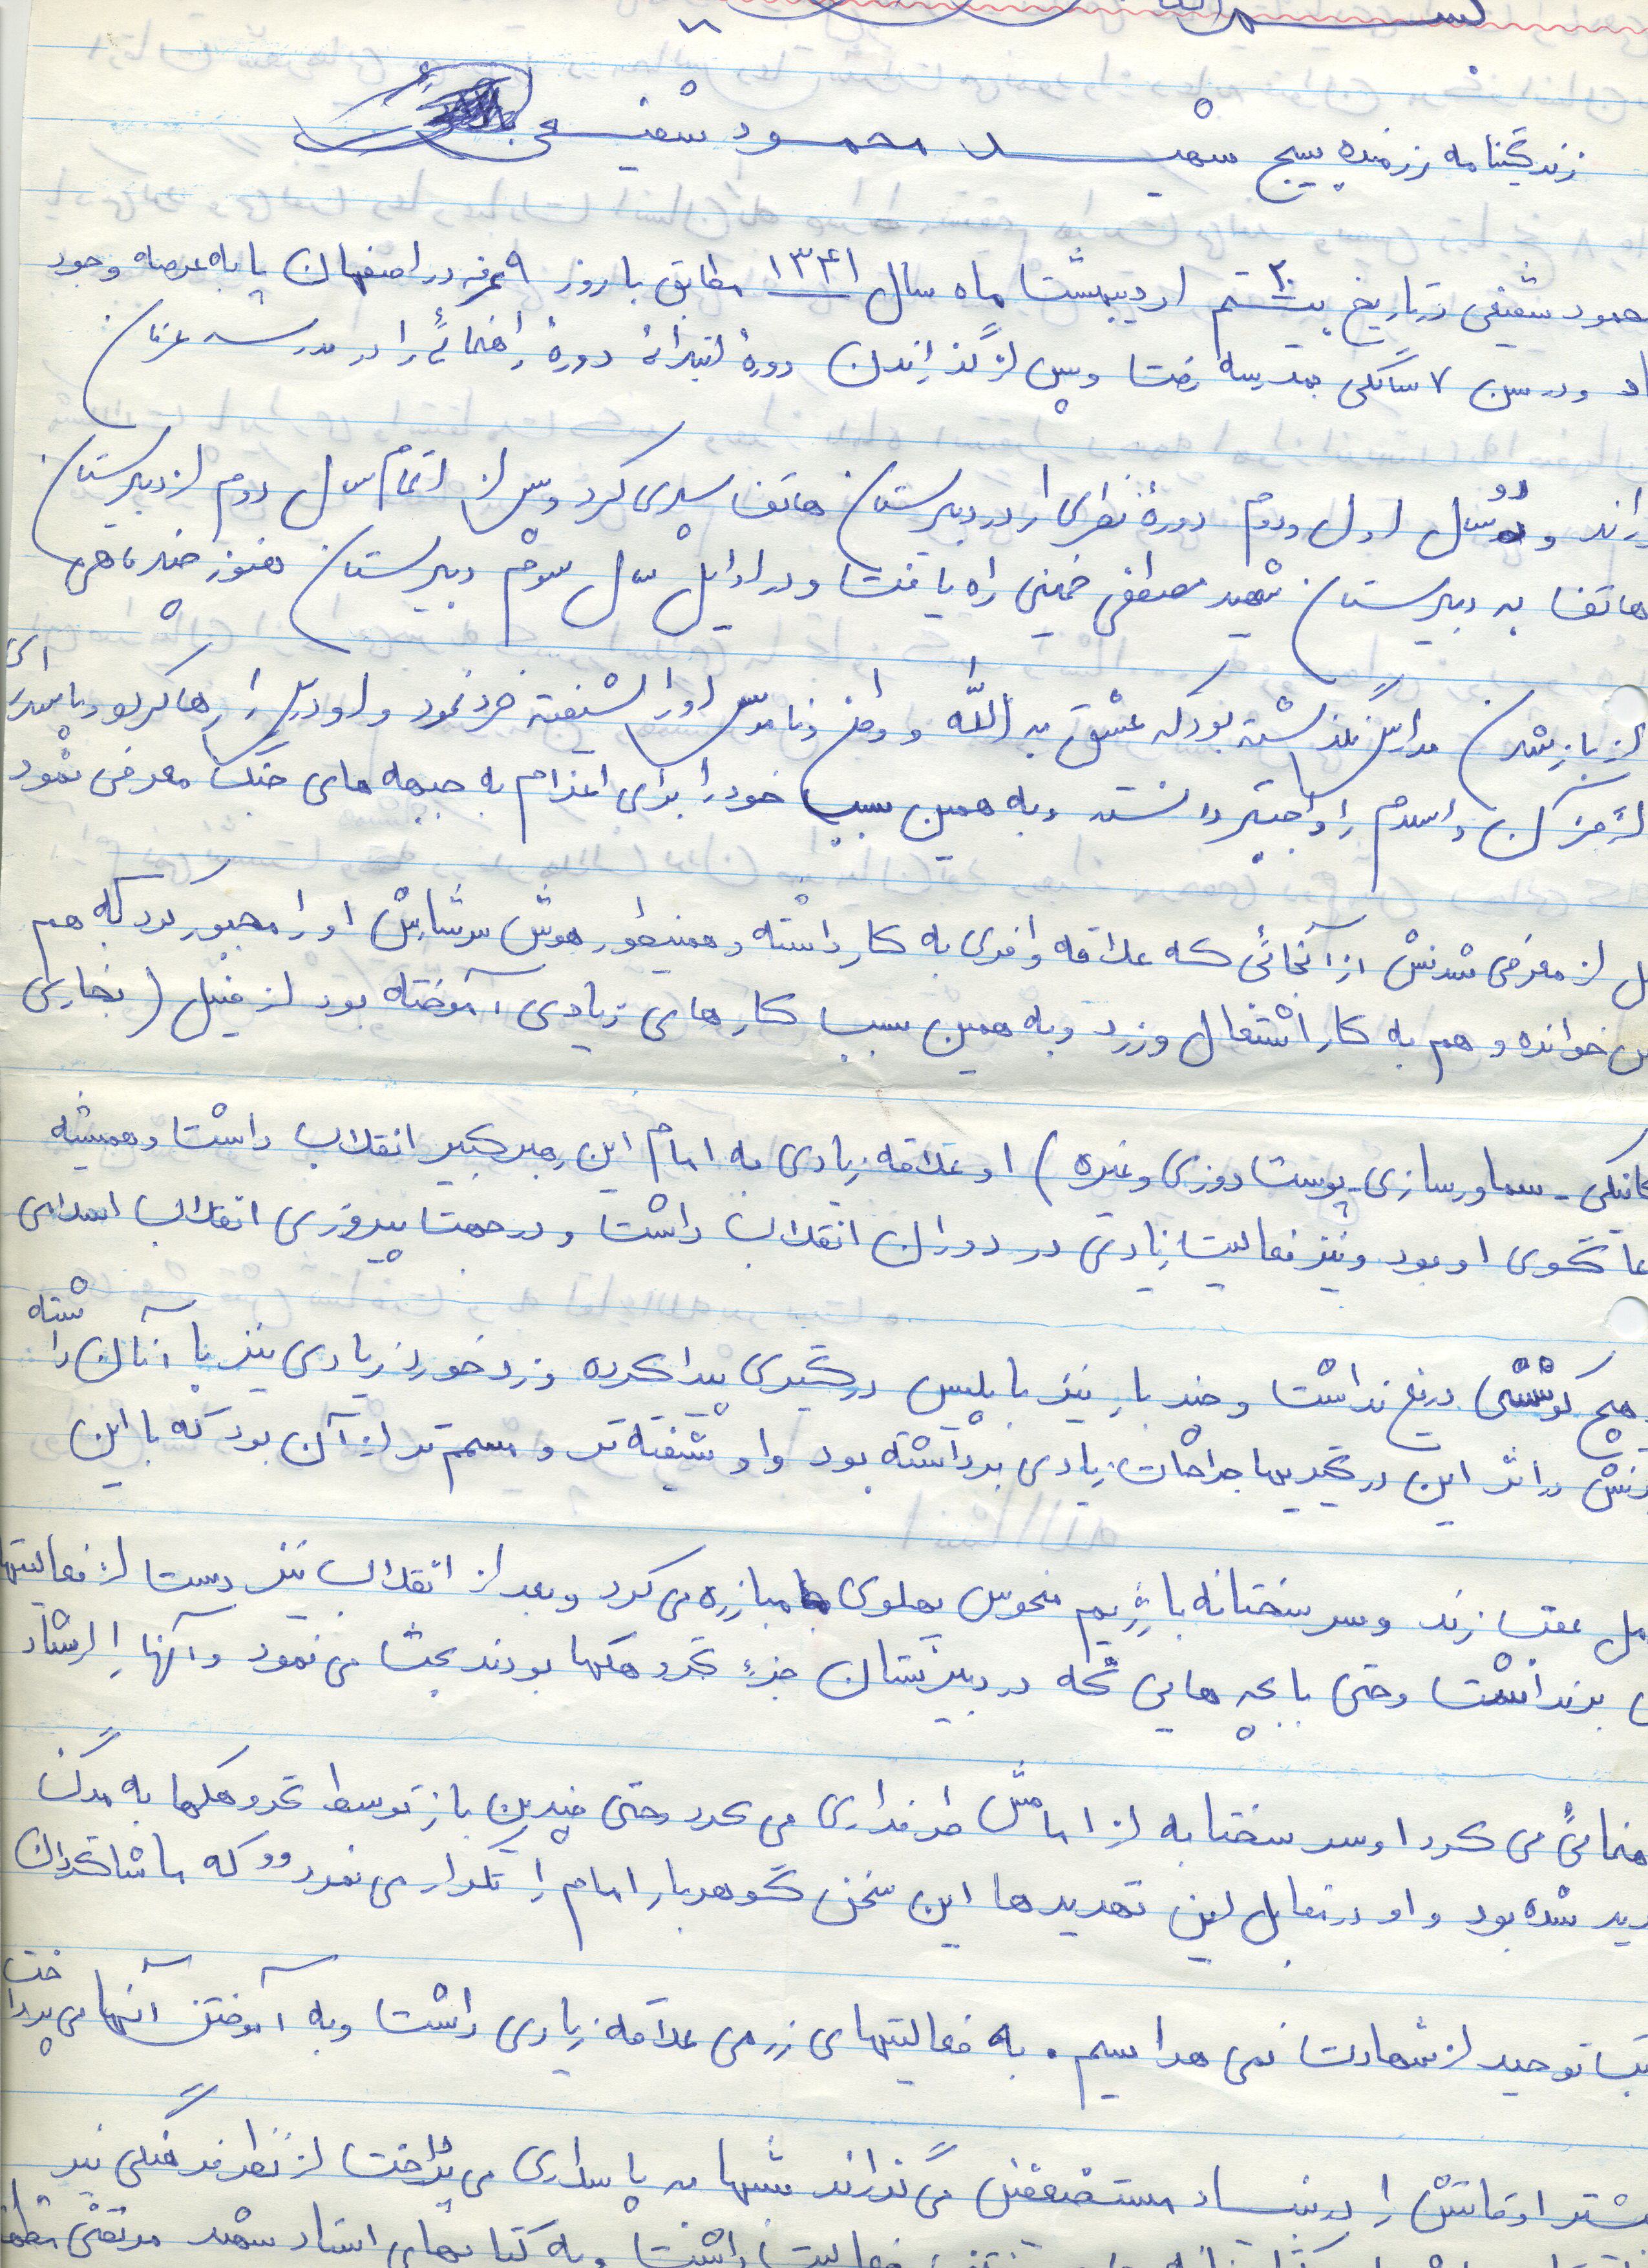 زندگینامه رزمنده بسیج شهید محمود شفیعی
محمود شفیعی در تاریخ بیستم ۲۰ اردیبهشت ماه سال ۱۳۴۱ مطابق با روز عرفه در اصفهان پا به عرصه وجود
و در سن ۷ سالگی بمدرسه رفت و پس از گذراندن دورهٔ ابتدائی دورهٔ راهنمائی را در مدرسه عرفان
راند و دو سال اول و دوم دورهٔ نظری را در دبیرستان هاتف سپری کرد و پس از اتمام سال دوم از دبیرستان
هاتف به دبیرستان شهید مصطفی خمینی راه یافت و در اوایل سال سوم دبیرستان هنوز چند ماهی
از باز شدن مدارس نگذشته بود که عشق به الله و وطن و ناموس او را شیفته خود نمود و او درس را رها کرد و پاسداری
از قرآن و اسلام را واجبتر دانسته و به همین سبب خود را برای اعزام به جبهه های جنگ معرفی نمود
از معرفی شدنش از آنجائی که علاقه وافری به کار داشته و همینطور هوش سرشارش او را مجبور کرد که هم
خوانده و هم به کار اشتغال ورزد و به همین سبب کارهای زیادی آموخته بود از قبیل (نجاری
کانیکی - سماورسازی - پوست دوزی و غیره) او علاقه زیادی به امام این رهبر کبیر انقلاب داشت و همیشه
عاگوی او بود و نیز فعالیت زیادی در دوران انقلاب داشت و در جهت پیروزی انقلاب اسلامی
هیچ کوششی دریغ نداشت و چند بار نیز با پلیس درگیری پیدا کرده و زد خورد زیادی نیز با آنان داشته
دنش در اثر این درگیریها جراحات زیادی برداشته بود و او شیفته تر و مسمم تر از آن بود که با این
عقب زند و سرسختانه با رژیم منحوس پهلوی مبارزه می کرد و بعد از انقلاب نیز دست از فعالیتها
برنداشت و حتی با بچه هایی که در دبیرستان جزء گروهکها بودند بحث می نمود و آنها را ارشاد
هنمائی می کرد او سرسختانه از امامش طرفداری می کرد و حتی چندین بار توسط گروهکها به مرگ
دید شده بود و او در مقابل این تهدیدها این سخن گوهربار امام را تکرار می نمود «که ما شاگردان
تب توحید از شهادت نمی هراسیم. به فعالیتهای رزمی علاقه زیادی داشت و به آموختن آنها می پرداخت
شتر اوقاتش را در بنیاد مستضعفین می گذراند شبها به پاسداری می پرداخت از نظر فرهنگی نیز
فعالیت داشت و به کتابهای استاد شهید مرتضی مطه